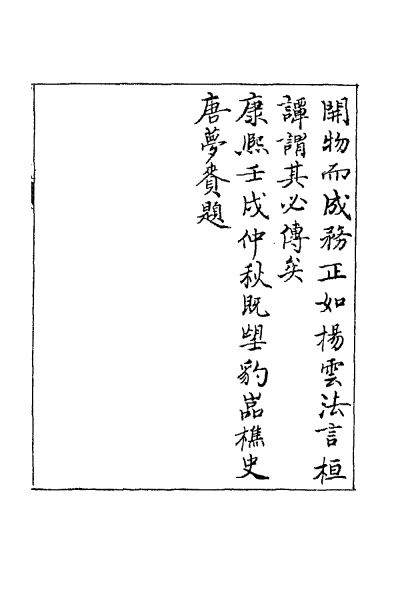 開物而成務正如楊雲法言桓
譚謂其必傳矣
康熈壬戌仲秋既望豹嵓樵史
唐夢賚題